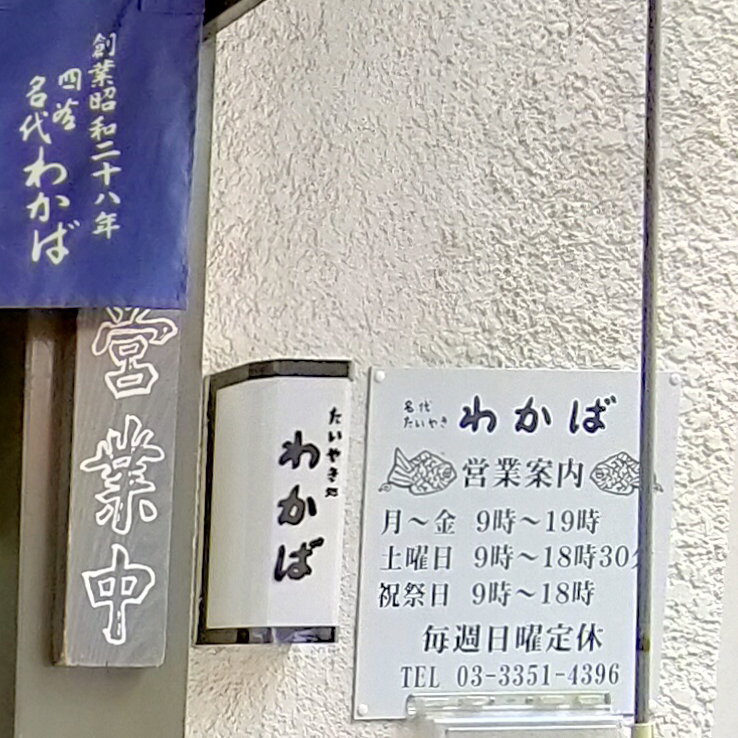 創業昭和二十八年
四谷
名代わかば
営業中
たいやき処
わかば
名代
たいやき
わかば
営業案内
月〜金 9時〜19時
土曜日 9時〜18時30分
祝祭日 9時〜18時
毎週日曜定休
TEL 03-3351-4396